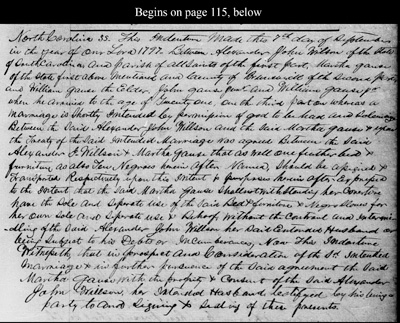 Begins on page 115, below
North Carolina SS. This Indenture Made this 7th day of September
in the year of our Lord 1797. Between Alexander John Willson of the State
of South Carolina and Parish of all Saints of the first part, Martha Gause
of the State first above Mentioned and County of Brunswick of the Second part
and William Gause the Elder John Gause and William Gause
when he arrives to the age of Twenty one on the third part. Whereas a
Marriage is Shortly Intended by permission of god to be had and Solemnized
Between the Said Alexander John Willson and the Said Martha Gause &
the Treaty of the Said Intended Marriage was agreed between the Said
Alexander J. Willson & Martha Gause that as well one feather bed &
furniture as also Negroes herein After Named Shall be &
Respectively upon the Intent & purposes herein after Expressed
to the Intent that the Said Martha Gause Shall notwithstanding her Coverture
have the Sole and Seperate use of the Said Bed & furniture & Negro Slaves for
her own Sole and Seperate use & Behoof Without the Controul and Intermed-
dling of the Said Alexander John Willson her Said Intended Husband or
being Subject to his Debts or Incumbrances. Now This Indenture
Witnesseth that in prospect and Consideration of the Sd. Intended
Marriage & in further pursuance of the Said agreement the Said
Martha Gause with the privity & Consent of the Said Alexander
John Willson her Intended Husband testified by his being a
party to and Signing & Sealing of these presents